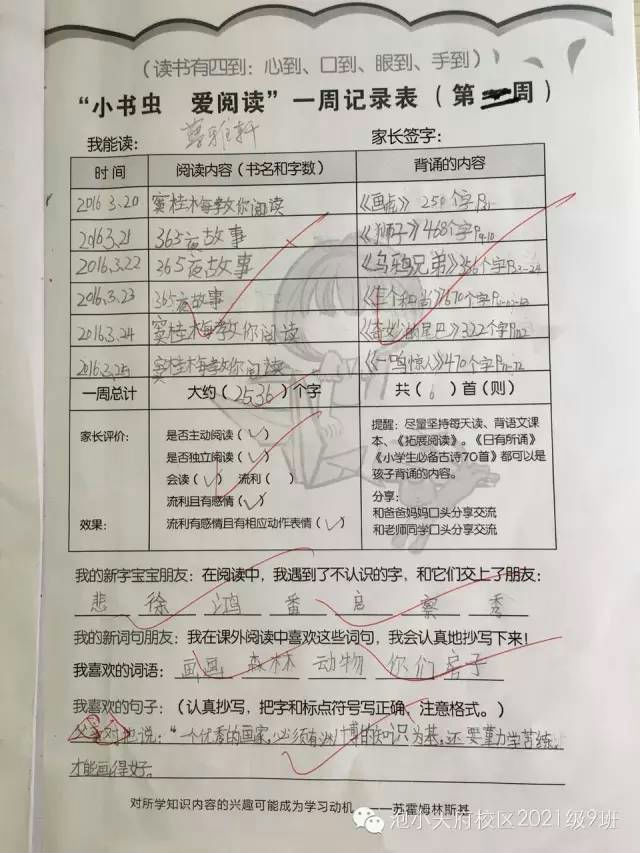 （读书有四到：心到、口到、眼到、手到）
“小书虫 爱阅读”一周记录表（第 周）
我能读： 雅轩 家长签字：
时间 阅读内容（书名和字数） 背诵的内容
2016.3.20 窦桂梅教你阅读 《画虎》250个字
2016.3.21 365夜故事 《狮子》468个字
2016.3.22 365夜故事 《乌鸦兄弟》 个字
2016.3.23 365夜故事 《 个和尚》670个字
2016.3.24 窦桂梅教你阅读 《奇妙的尾巴》322个字
2016.3.25 窦桂梅教你阅读 《一鸣惊人》470个字
一周总计 大约（2536）个字 共（6）首（则）
家长评价：
是否主动阅读（√）
是否独立阅读（√）
会读（√） 流利（ ）
流利且有感情（√）
效果： 流利有感情且有相应动作表情（√）
提醒：尽量坚持每天读、背语文课
本、《拓展阅读》。《日有所诵》
《小学生必备古诗70首》都可以是
孩子背诵的内容。
分享：
和爸爸妈妈口头分享交流
和老师同学口头分享交流
我的新字宝宝朋友：在阅读中，我遇到了不认识的字，和它们交上了朋友：
悲 徐 鸿 番 启 察 秀
我的新词句朋友：我在课外阅读中喜欢这些词句，我会认真地抄写下来！
我喜欢的词语： 画画 森林 动物 你们 房子
我喜欢的句子：（认真抄写，把字和标点符号写正确、注意格式。）
父亲对他说：“一个优秀的画家，必须有 博的知识为基，还要勤学苦练
才能画得好。
对所学知识内容的兴趣可能成为学习动机。 ——苏霍姆林斯基
范小天府校区2021级9班